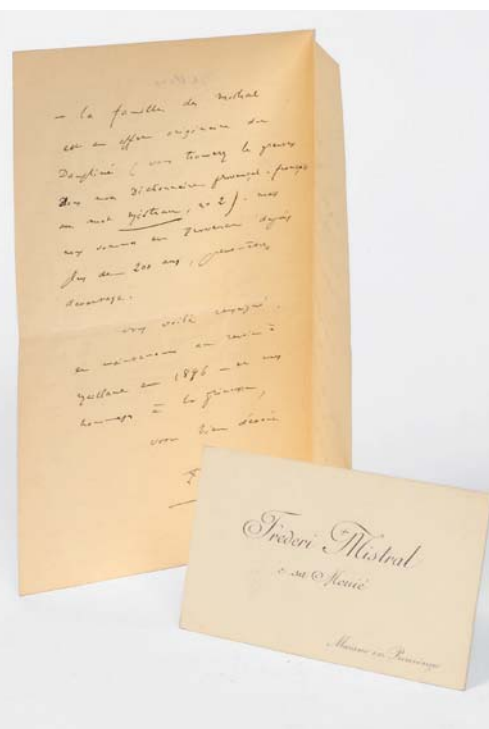 — la famille des Mistral
est en effet originaire du
Dauphiné (vous trouverez la preuve
dans mon Dictionnaire provençal-français
au mot Mistrau, no 2). mais
nous sommes en Provence depuis
plus de 200 ans, peut-être
davantage.
vous voilà renseigné.
et maintenant au revoir à
Maillane en 1896 — et mes
hommages à la
vôtre bien dévoué
F.
Frederi Mistral
e sa Mouié
Maiano en Prouvènço